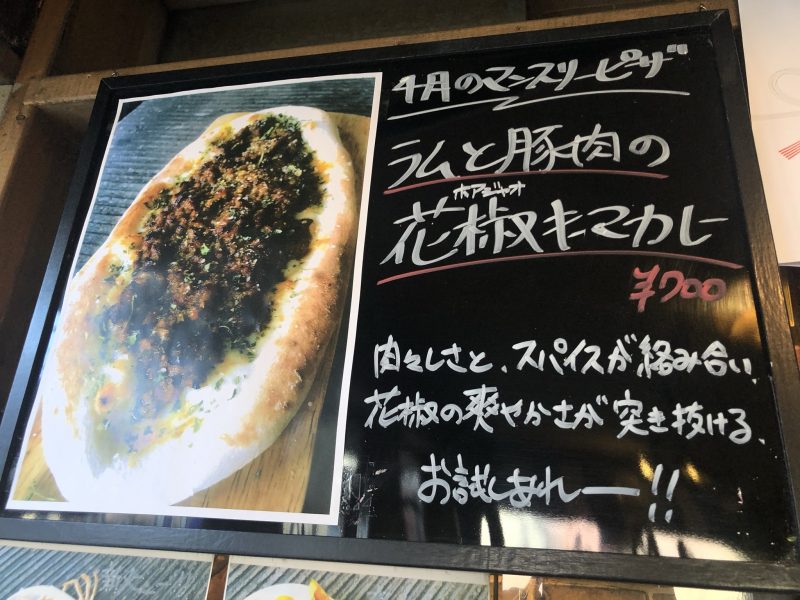 4月のマンスリーピザ
ラムと豚肉の
ホアジャオ
花椒キマカレー
¥700
肉々しさと、スパイスが絡み合い、
花椒の爽やかさが突き抜ける、
お試しあれー!!